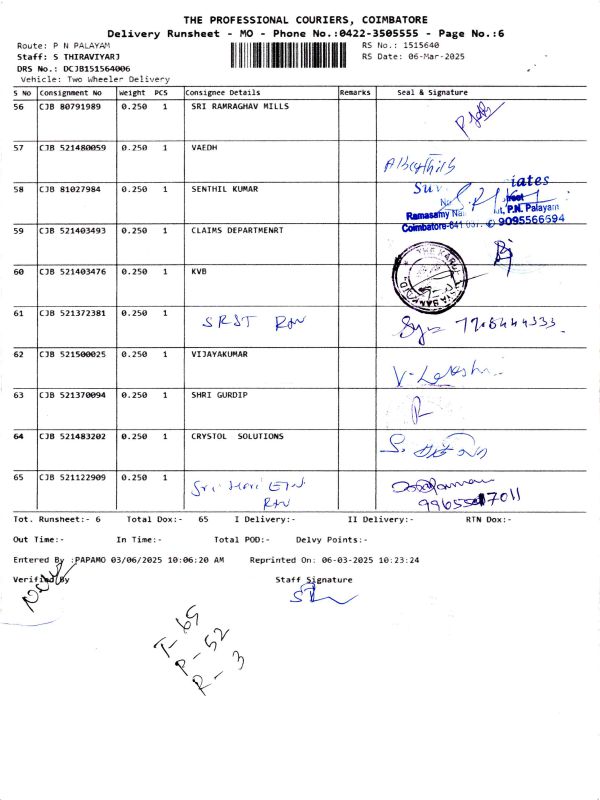 THE PROFESSIONAL COURIERS, COIMBATORE
Delivery Runsheet - MO - Phone No.:0422-3505555 - Page No.:6
Route: P N PALAYAM RS No.: 1515640
Staff: S THIRAVIYARJ RS Date: 06-Mar-2025
DRS No.: DCJB151564006
Vehicle: Two Wheeler Delivery
S No Consignment No Weight PCS Consignee Details Remarks Seal & Signature
56 CJB 80791989 0.250 1 SRI RAMRAGHAV MILLS
57 CJB 521480059 0.250 1 VAEDH
58 CJB 81027984 0.250 1 SENTHIL KUMAR
iates
P.N. Palayam
Coimbatore-641 037. 9095566594
59 CJB 521403493 0.250 1 CLAIMS DEPARTMENRT
60 CJB 521403476 0.250 1 KVB
61 CJB 521372381 0.250 1 SRST RN
62 CJB 521500025 0.250 1 VIJAYAKUMAR
63 CJB 521370094 0.250 1 SHRI GURDIP
64 CJB 521483202 0.250 1 CRYSTOL SOLUTIONS
65 CJB 521122909 0.250 1 Sri Hari ETN
Tot. Runsheet:- 6 Total Dox:- 65 I Delivery:- II Delivery:- RTN Dox:-
Out Time:- In Time:- Total POD:- Delvy Points:-
Entered By :PAPAMO 03/06/2025 10:06:20 AM Reprinted On: 06-03-2025 10:23:24
Verified By Staff Signature
T- 65
P- 52
R- 3